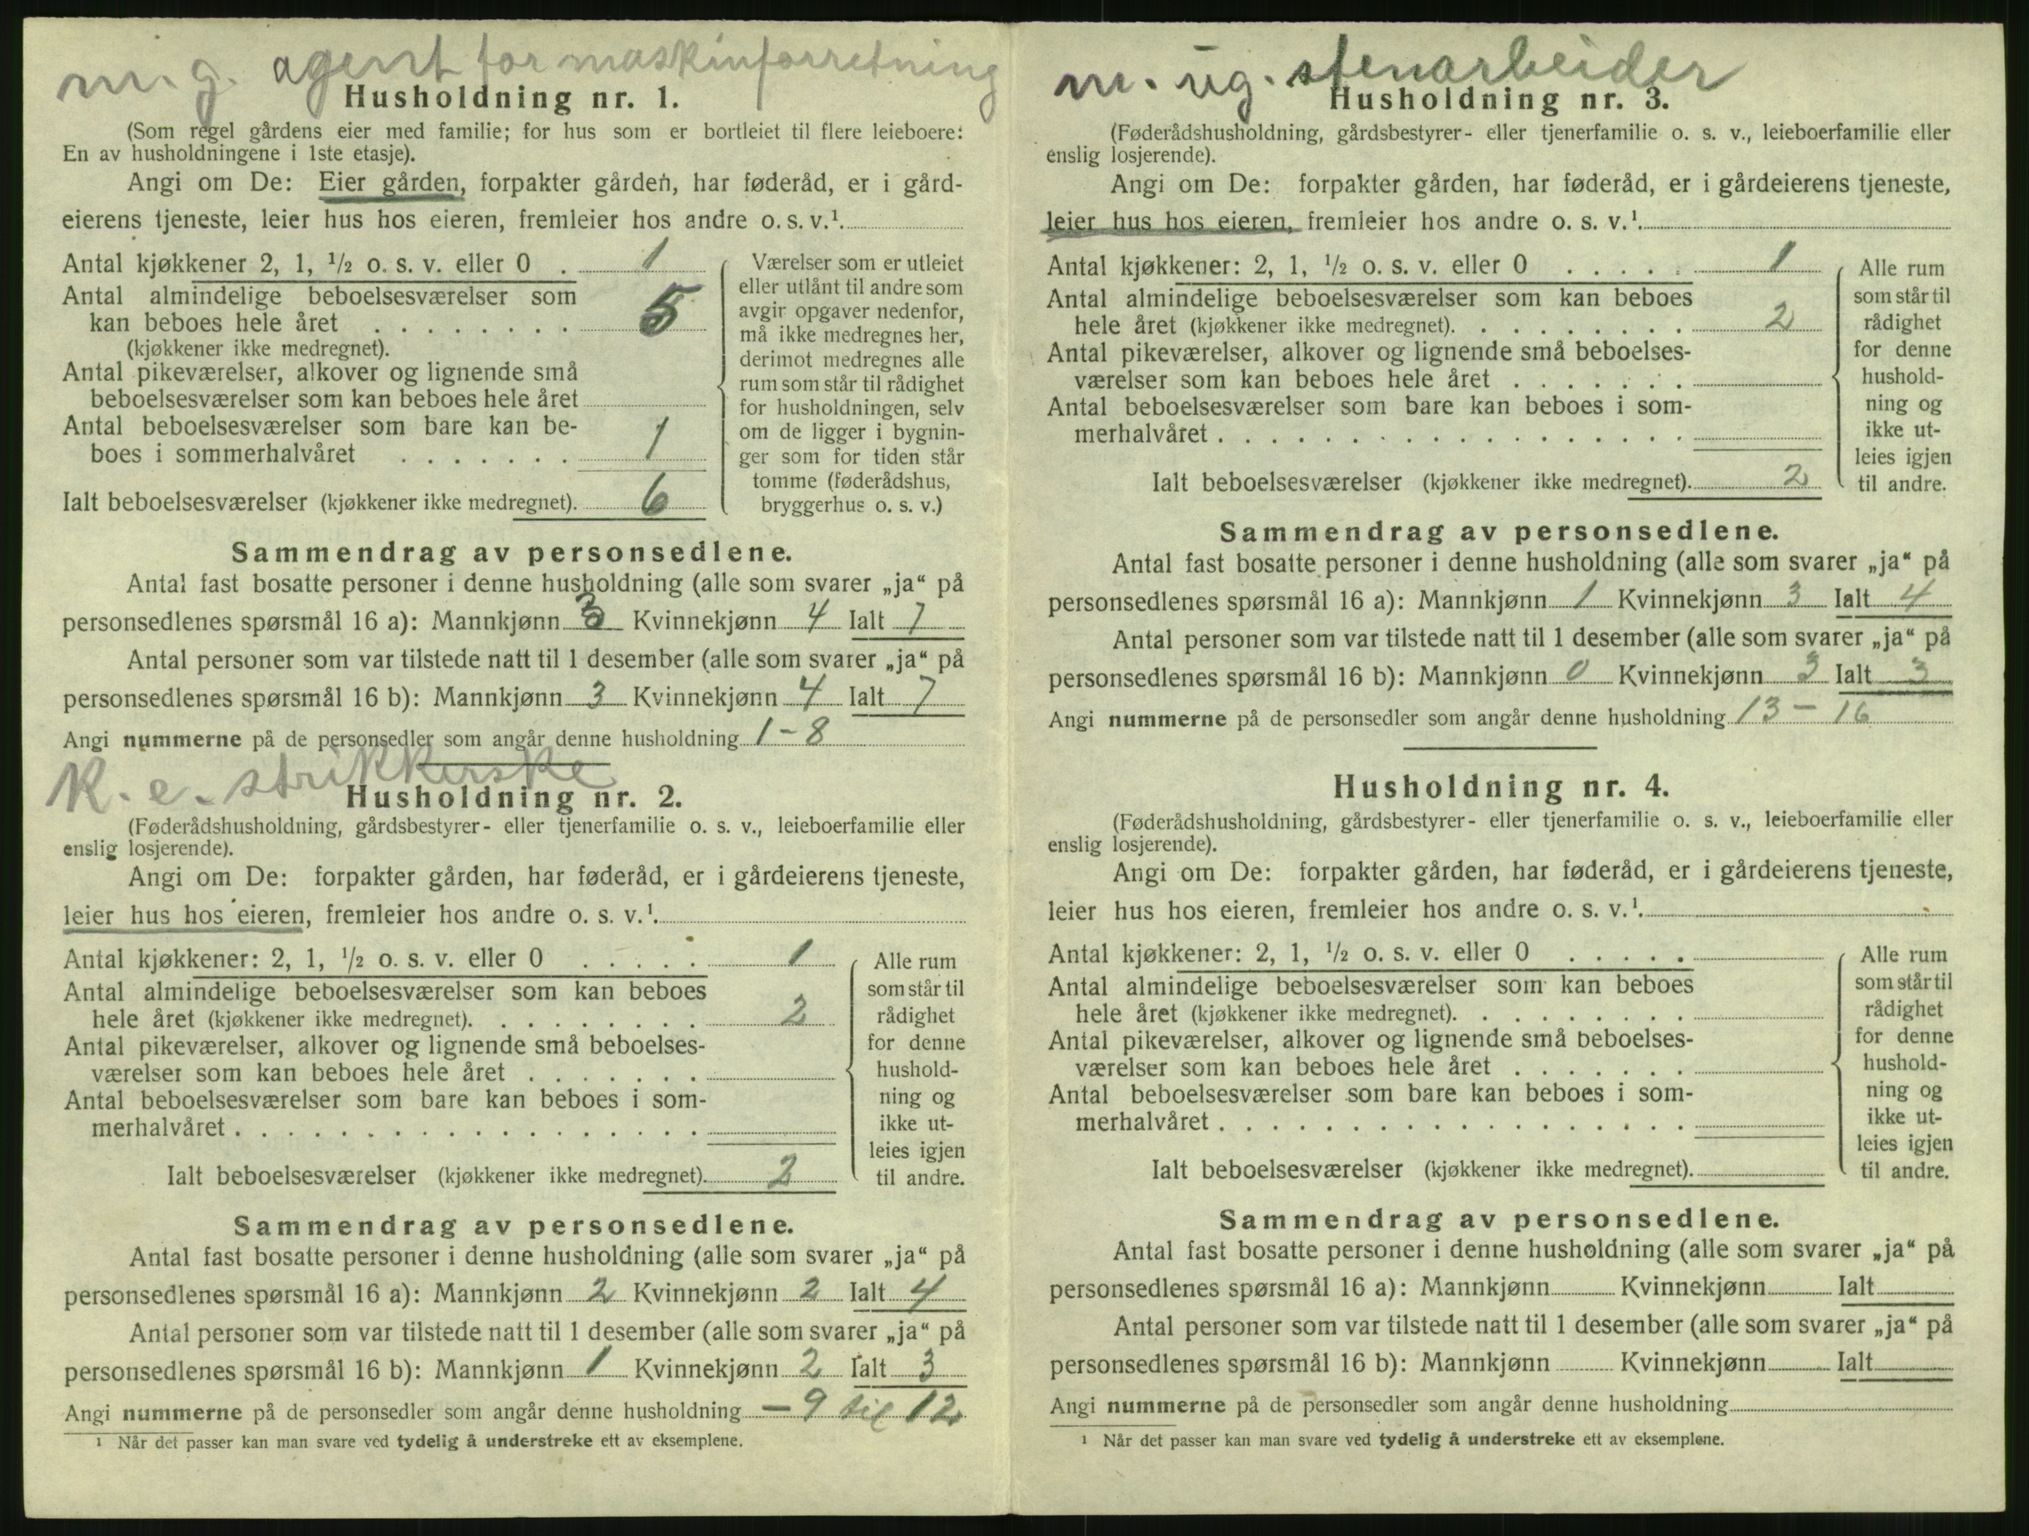 m. g. agent for maskinforretning
Husholdning nr. 1.
(Som regel gårdens eier med familie; for hus som er bortleiet til flere leieboere:
En av husholdningene i 1ste etasje).
Angi om De: Eier gården, forpakter gården, har føderåd, er i gård-
eierens tjeneste, leier hus hos eieren, fremleier hos andre o. s. v.¹.
Antal kjøkkener 2, 1, ½ o. s. v. eller 0 . 1
Antal almindelige beboelsesværelser som
kan beboes hele året . . . . . . . . 5
(kjøkkener ikke medregnet).
Antal pikeværelser, alkover og lignende små
beboelsesværelser som kan beboes hele året
Antal beboelsesværelser som bare kan be-
boes i sommerhalvåret . . . . . . . 1
Ialt beboelsesværelser (kjøkkener ikke medregnet). 6
Værelser som er utleiet
eller utlånt til andre som
avgir opgaver nedenfor,
må ikke medregnes her,
derimot medregnes alle
rum som står til rådighet
for husholdningen, selv
om de ligger i bygnin-
ger som for tiden står
tomme (føderådshus,
bryggerhus o. s. v.)
Sammendrag av personsedlene.
Antal fast bosatte personer i denne husholdning (alle som svarer „ja“ på
personsedlenes spørsmål 16 a): Mannkjønn 3 Kvinnekjønn 4 Ialt 7
Antal personer som var tilstede natt til 1 desember (alle som svarer „ja“ på
personsedlenes spørsmål 16 b): Mannkjønn 3 Kvinnekjønn 4 Ialt 7
Angi nummerne på de personsedler som angår denne husholdning 1 – 8
K. e. strikkerske
Husholdning nr. 2.
(Føderådshusholdning, gårdsbestyrer- eller tjenerfamilie o. s. v., leieboerfamilie eller
enslig losjerende).
Angi om De: forpakter gården, har føderåd, er i gårdeierens tjeneste,
leier hus hos eieren, fremleier hos andre o. s. v.¹.
Antal kjøkkener: 2, 1, ½ o. s. v. eller 0 . . . . . 1
Antal almindelige beboelsesværelser som kan beboes
hele året (kjøkkener ikke medregnet). . . . . . . . 2
Antal pikeværelser, alkover og lignende små beboelses-
værelser som kan beboes hele året . . . . . . .
Antal beboelsesværelser som bare kan beboes i som-
merhalvåret . . . . . . . . . . . . . . . . . .
Ialt beboelsesværelser (kjøkkener ikke medregnet). 2
Alle rum
som står til
rådighet
for denne
hushold-
ning og
ikke ut-
leies igjen
til andre.
Sammendrag av personsedlene.
Antal fast bosatte personer i denne husholdning (alle som svarer „ja“ på
personsedlenes spørsmål 16 a): Mannkjønn 2 Kvinnekjønn 2 Ialt 4
Antal personer som var tilstede natt til 1 desember (alle som svarer „ja“ på
personsedlenes spørsmål 16 b): Mannkjønn 1 Kvinnekjønn 2 Ialt 3
Angi nummerne på de personsedler som angår denne husholdning – 9 til 12
¹ Når det passer kan man svare ved tydelig å understreke ett av eksemplene.
m. ug. stenarbeider
Husholdning nr. 3.
(Føderådshusholdning, gårdsbestyrer- eller tjenerfamilie o. s. v., leieboerfamilie eller
enslig losjerende).
Angi om De: forpakter gården, har føderåd, er i gårdeierens tjeneste,
leier hus hos eieren, fremleier hos andre o. s. v.¹.
Antal kjøkkener: 2, 1, ½ o. s. v. eller 0 . . . . . 1
Antal almindelige beboelsesværelser som kan beboes
hele året (kjøkkener ikke medregnet). . . . . . . . 2
Antal pikeværelser, alkover og lignende små beboelses-
værelser som kan beboes hele året . . . . . . .
Antal beboelsesværelser som bare kan beboes i som-
merhalvåret . . . . . . . . . . . . . . . . . .
Ialt beboelsesværelser (kjøkkener ikke medregnet). 2
Alle rum
som står til
rådighet
for denne
hushold-
ning og
ikke ut-
leies igjen
til andre.
Sammendrag av personsedlene.
Antal fast bosatte personer i denne husholdning (alle som svarer „ja“ på
personsedlenes spørsmål 16 a): Mannkjønn 1 Kvinnekjønn 3 Ialt 4
Antal personer som var tilstede natt til 1 desember (alle som svarer „ja“ på
personsedlenes spørsmål 16 b): Mannkjønn 0 Kvinnekjønn 3 Ialt 3
Angi nummerne på de personsedler som angår denne husholdning 13 – 16
Husholdning nr. 4.
(Føderådshusholdning, gårdsbestyrer- eller tjenerfamilie o. s. v., leieboerfamilie eller
enslig losjerende).
Angi om De: forpakter gården, har føderåd, er i gårdeierens tjeneste,
leier hus hos eieren, fremleier hos andre o. s. v.¹.
Antal kjøkkener: 2, 1, ½ o. s. v. eller 0 . . . . .
Antal almindelige beboelsesværelser som kan beboes
hele året (kjøkkener ikke medregnet). . . . . . . .
Antal pikeværelser, alkover og lignende små beboelses-
værelser som kan beboes hele året . . . . . . .
Antal beboelsesværelser som bare kan beboes i som-
merhalvåret . . . . . . . . . . . . . . . . . .
Ialt beboelsesværelser (kjøkkener ikke medregnet).
Alle rum
som står til
rådighet
for denne
hushold-
ning og
ikke ut-
leies igjen
til andre.
Sammendrag av personsedlene.
Antal fast bosatte personer i denne husholdning (alle som svarer „ja“ på
personsedlenes spørsmål 16 a): Mannkjønn Kvinnekjønn Ialt
Antal personer som var tilstede natt til 1 desember (alle som svarer „ja“ på
personsedlenes spørsmål 16 b): Mannkjønn Kvinnekjønn Ialt
Angi nummerne på de personsedler som angår denne husholdning
¹ Når det passer kan man svare ved tydelig å understreke ett av eksemplene.